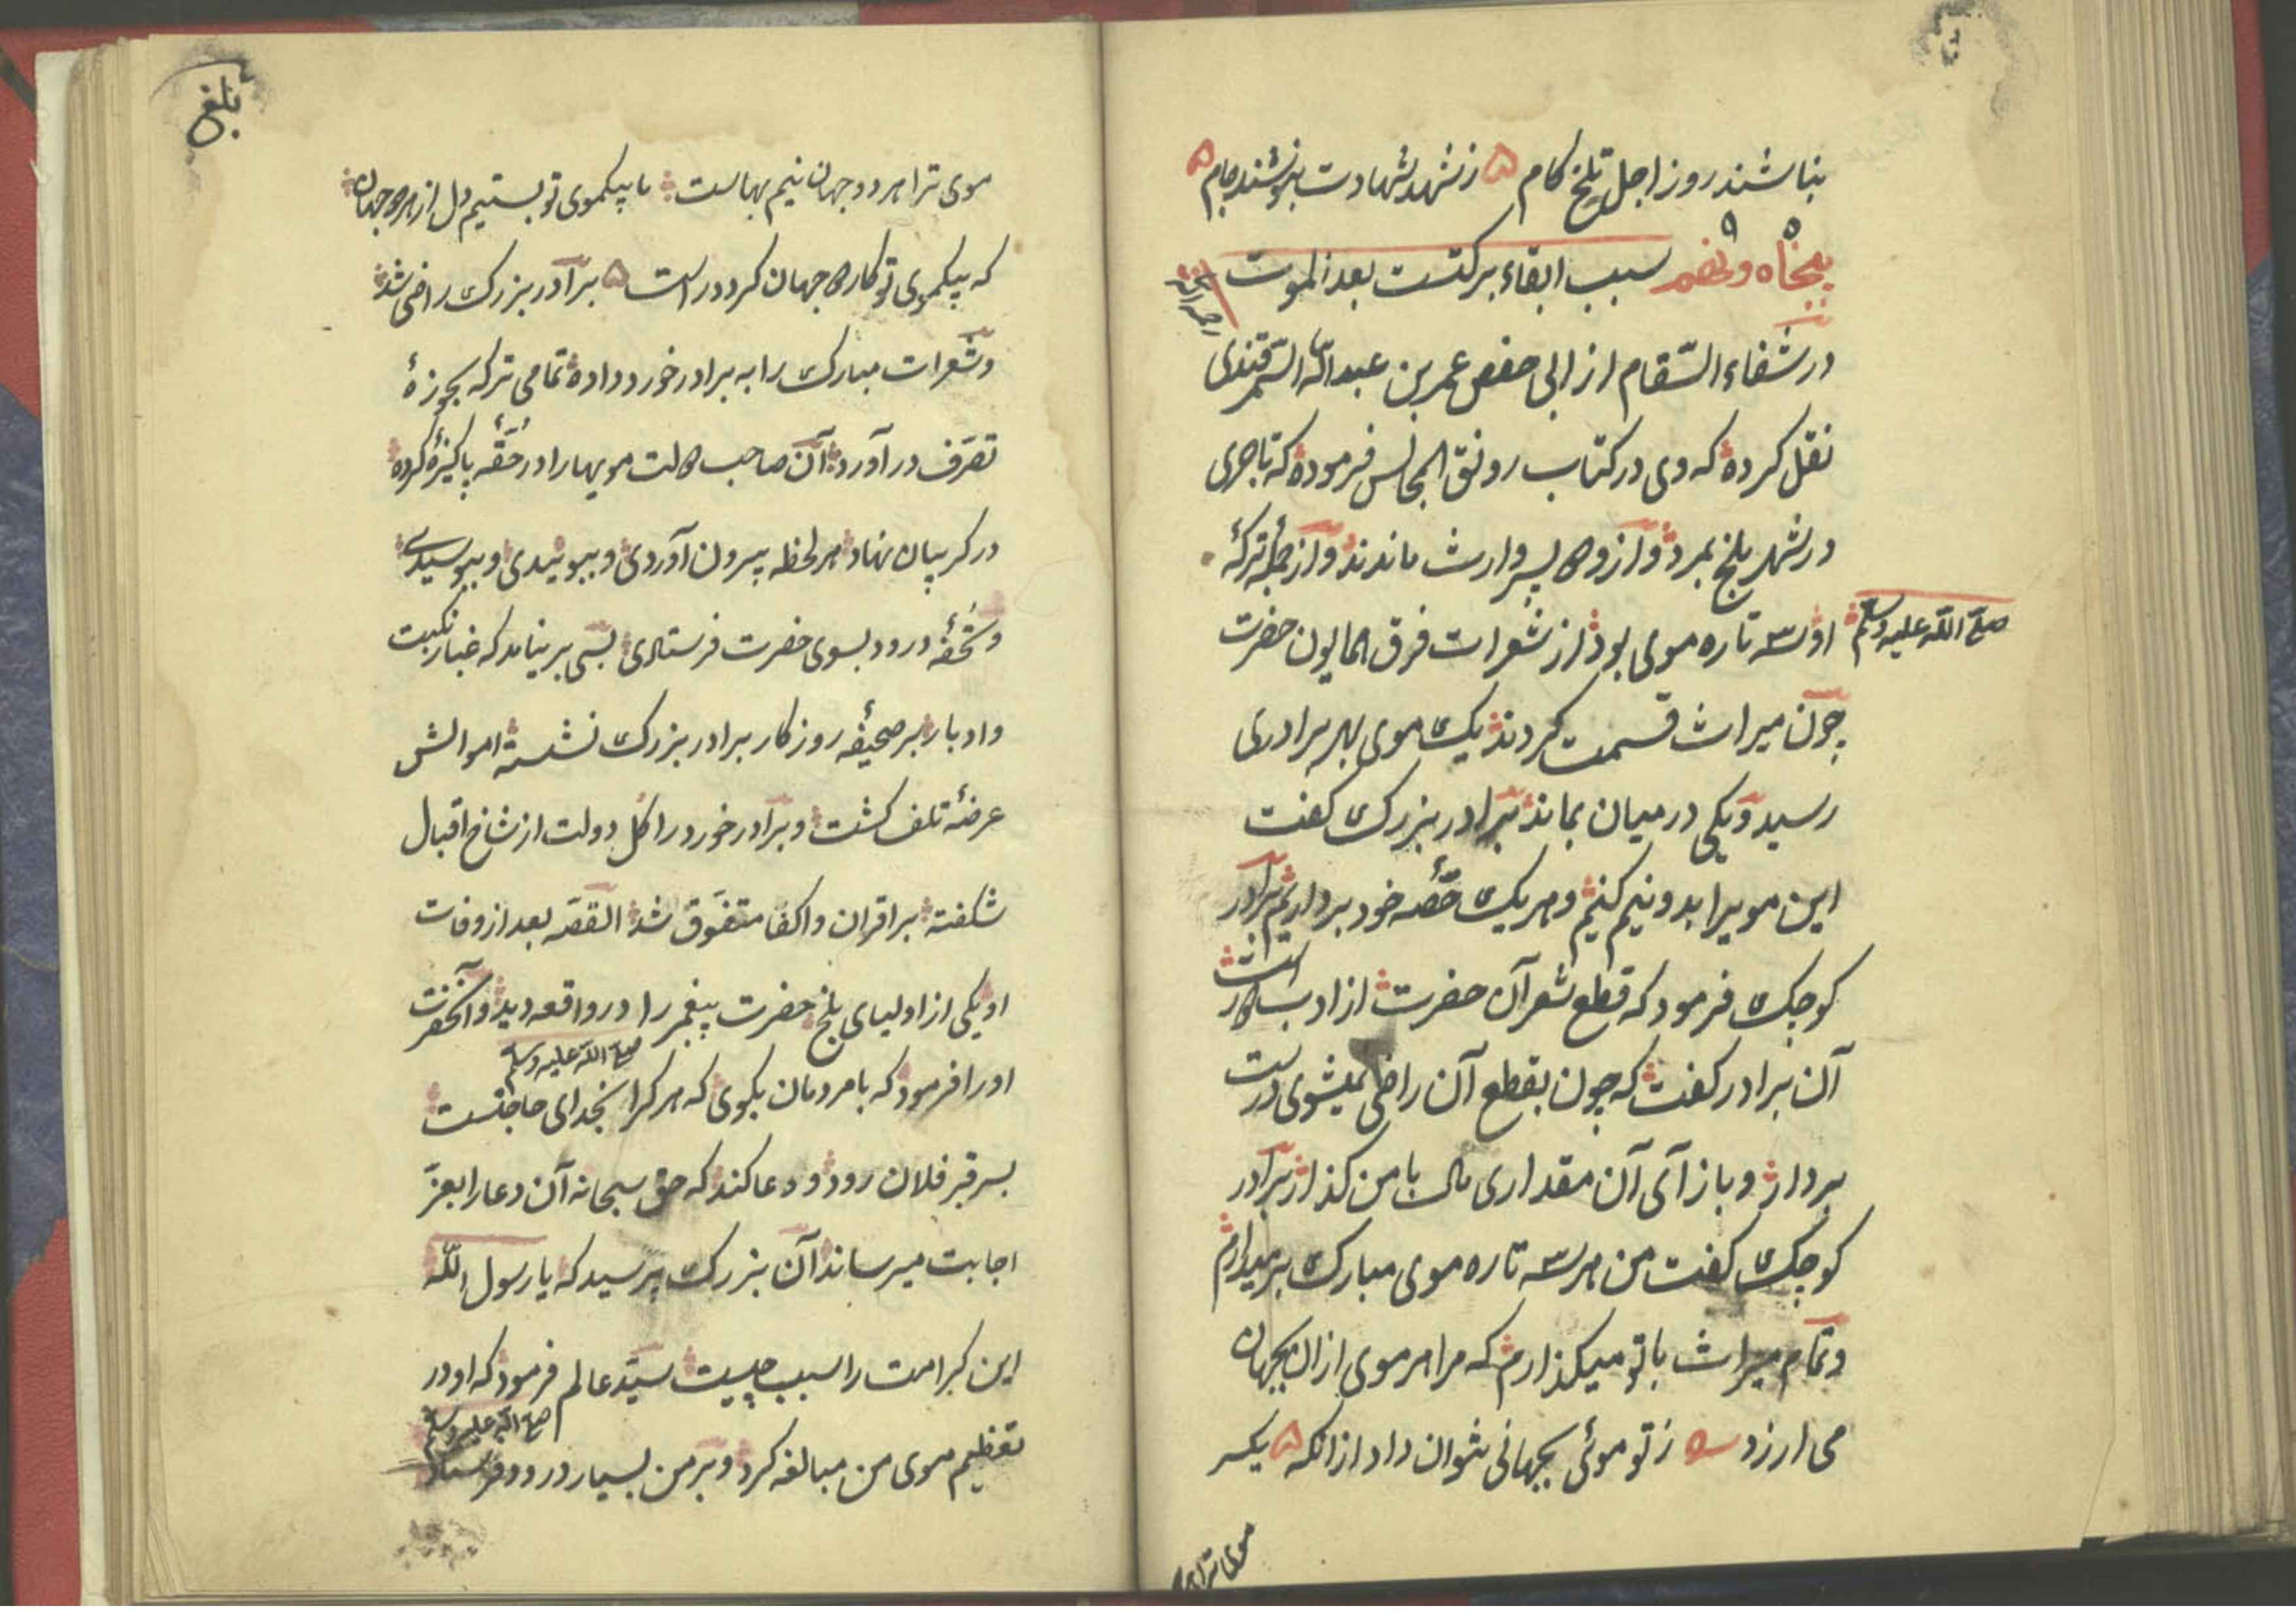 بناشند روز اجل تلخ کام ز شهد شهادت بنوشند جام
پنجاه و نهم سبب ابقاء برکتست بعد الموت
در شفاء السّقام از ابی حفص عمر بن عبد اللّه السّمرقندی
نقل کرده که وی در کتاب رونق المجالس فرموده که تاجری
در شهر بلخ بمرد و از و دو پسر وارث ماندند و از جملهٔ ترکهٔ
او سه تاره موی بود از شعرات فرق همایون حضرت
صلی اللّه علیه وسلم
چون میراث قسمت کردند یک موی بهر برادری
رسید و یکی در میان بماند برادر بزرک کفت
این مویرا بدو نیم کنیم و هر یک حصّهٔ خود برداریم برادر
کوچک فرمود که قطع شعر آن حضرت از ادب دور است
آن برادر کفت که چون بقطع آن راضی نمیشوی درست
بردار و باز آی آن مقداری مال با من کذار برادر
کوچک کفت من هر سه تاره موی مبارک بر میدارم
و تمام میراث با تو میکذارم که مرا هر موی ازان بجهان
می ارزد ز تو موئی بجهانی نتوان داد ازانکه یکسر
موی ترا هر
بلغ
موی ترا هر دو جهان نیم بهاست ما بیکموی تو بستیم دل از هر دو جهان
که بیکموی تو کار دو جهان کرد دراست برادر بزرک راضی شد
و شعرات مبارک را به برادر خورد داده تمامی ترکه بحوزهٔ
تصرّف در آورد آن صاحب دولت مویها را در حقّهٔ پاکیزه کرده
در کریبان نهاد هر لحظه بیرون آوردی و ببوئیدی و ببوسیدی
و تحفهٔ درود بسوی حضرت فرستادی بسی بر نیامد که غبار نکبت
و ادبار بر صحیفهٔ روزکار برادر بزرک نشسته اموالش
عرضهٔ تلف کشت و برادر خورد را کل دولت از شاخ اقبال
شکفته بر اقران و اکفا متفوّق شد القصّه بعد از وفات
او یکی از اولیای بلخ حضرت پیغمبر را در واقعه دید و آنحضرت
صلی اللّه علیه وسلم
او را فرمود که با مردمان بکوی که هر کرا بخدای حاجتست
بسر قبر فلان رود و دعا کند که حق سبحانه آن دعا را بعزّ
اجابت میرساند آن بزرک پرسید که یا رسول اللّه
این کرامت را سبب چیست سیّد عالم فرمود که او در
صلی اللّه علیه وسلم
تعظیم موی من مبالغه کرد و بر من بسیار درود فرستاد